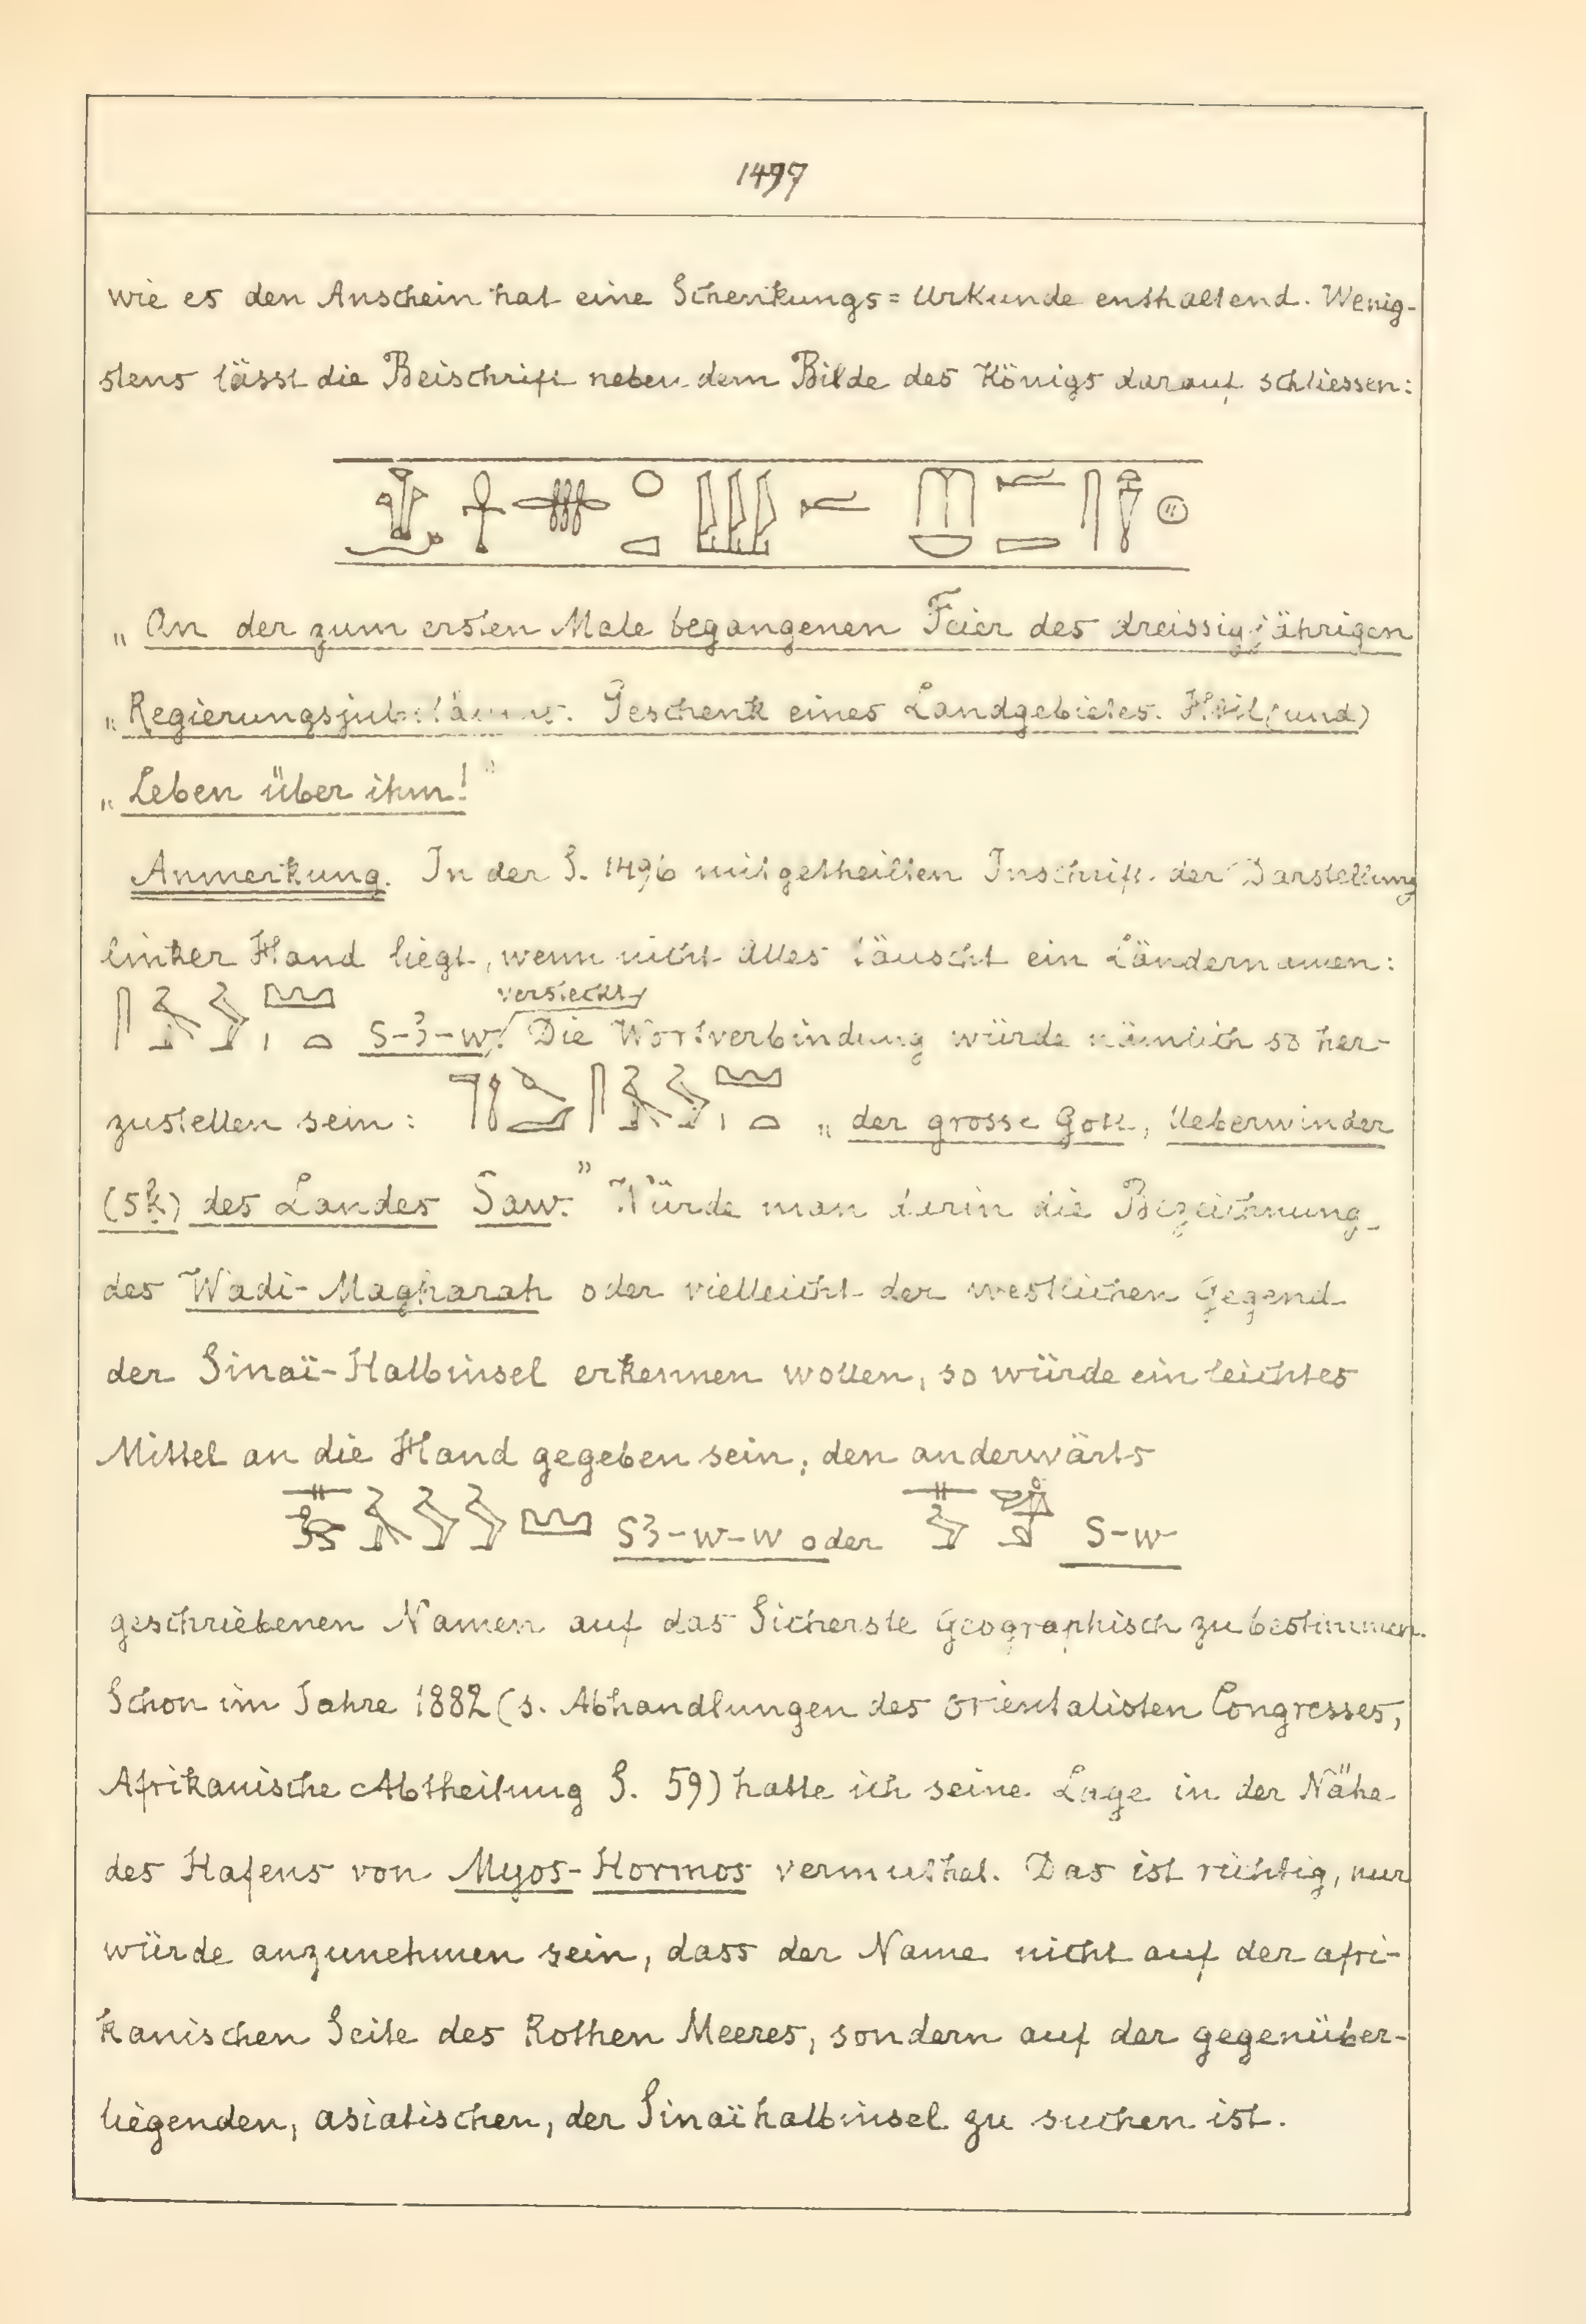 1497
wie es den Anschein hat eine Schenkungs=Urkunde enthaltend. Wenig-
stens lässt die Beischrift neben dem Bilde des Königs darauf schliessen:
„An der zum ersten Male begangenen Feier des dreissigjährigen
„Regierungsjubiläums. Geschenk eines Landgebietes. Heil (und)
„Leben über ihm!"
Anmerkung. In der S. 1496 mitgetheilten Inschrift der Darstellung
linker Hand liegt, wenn nicht Alles täuscht ein Ländernamen:
versteckt
S-3-w. Die Wortverbindung würde nämlich so her-
zustellen sein: „der grosse Gott, Ueberwinder
(sḳ) des Landes Saw." Würde man darin die Bezeichnung
des Wadi-Magharah oder vielleicht der westlichen Gegend
der Sinaï-Halbinsel erkennen wollen, so würde ein leichtes
Mittel an die Hand gegeben sein, den anderwärts
S3-w-w oder S-w
geschriebenen Namen auf das Sicherste geographisch zu bestimmen.
Schon im Jahre 1882 (s. Abhandlungen des Orientalisten Congresses,
Afrikanische Abtheilung S. 59) hatte ich seine Lage in der Nähe
des Hafens von Myos-Hormos vermuthet. Das ist richtig, nur
würde anzunehmen sein, dass der Name nicht auf der afri-
kanischen Seite des Rothen Meeres, sondern auf der gegenüber-
liegenden, asiatischen, der Sinaïhalbinsel zu suchen ist.